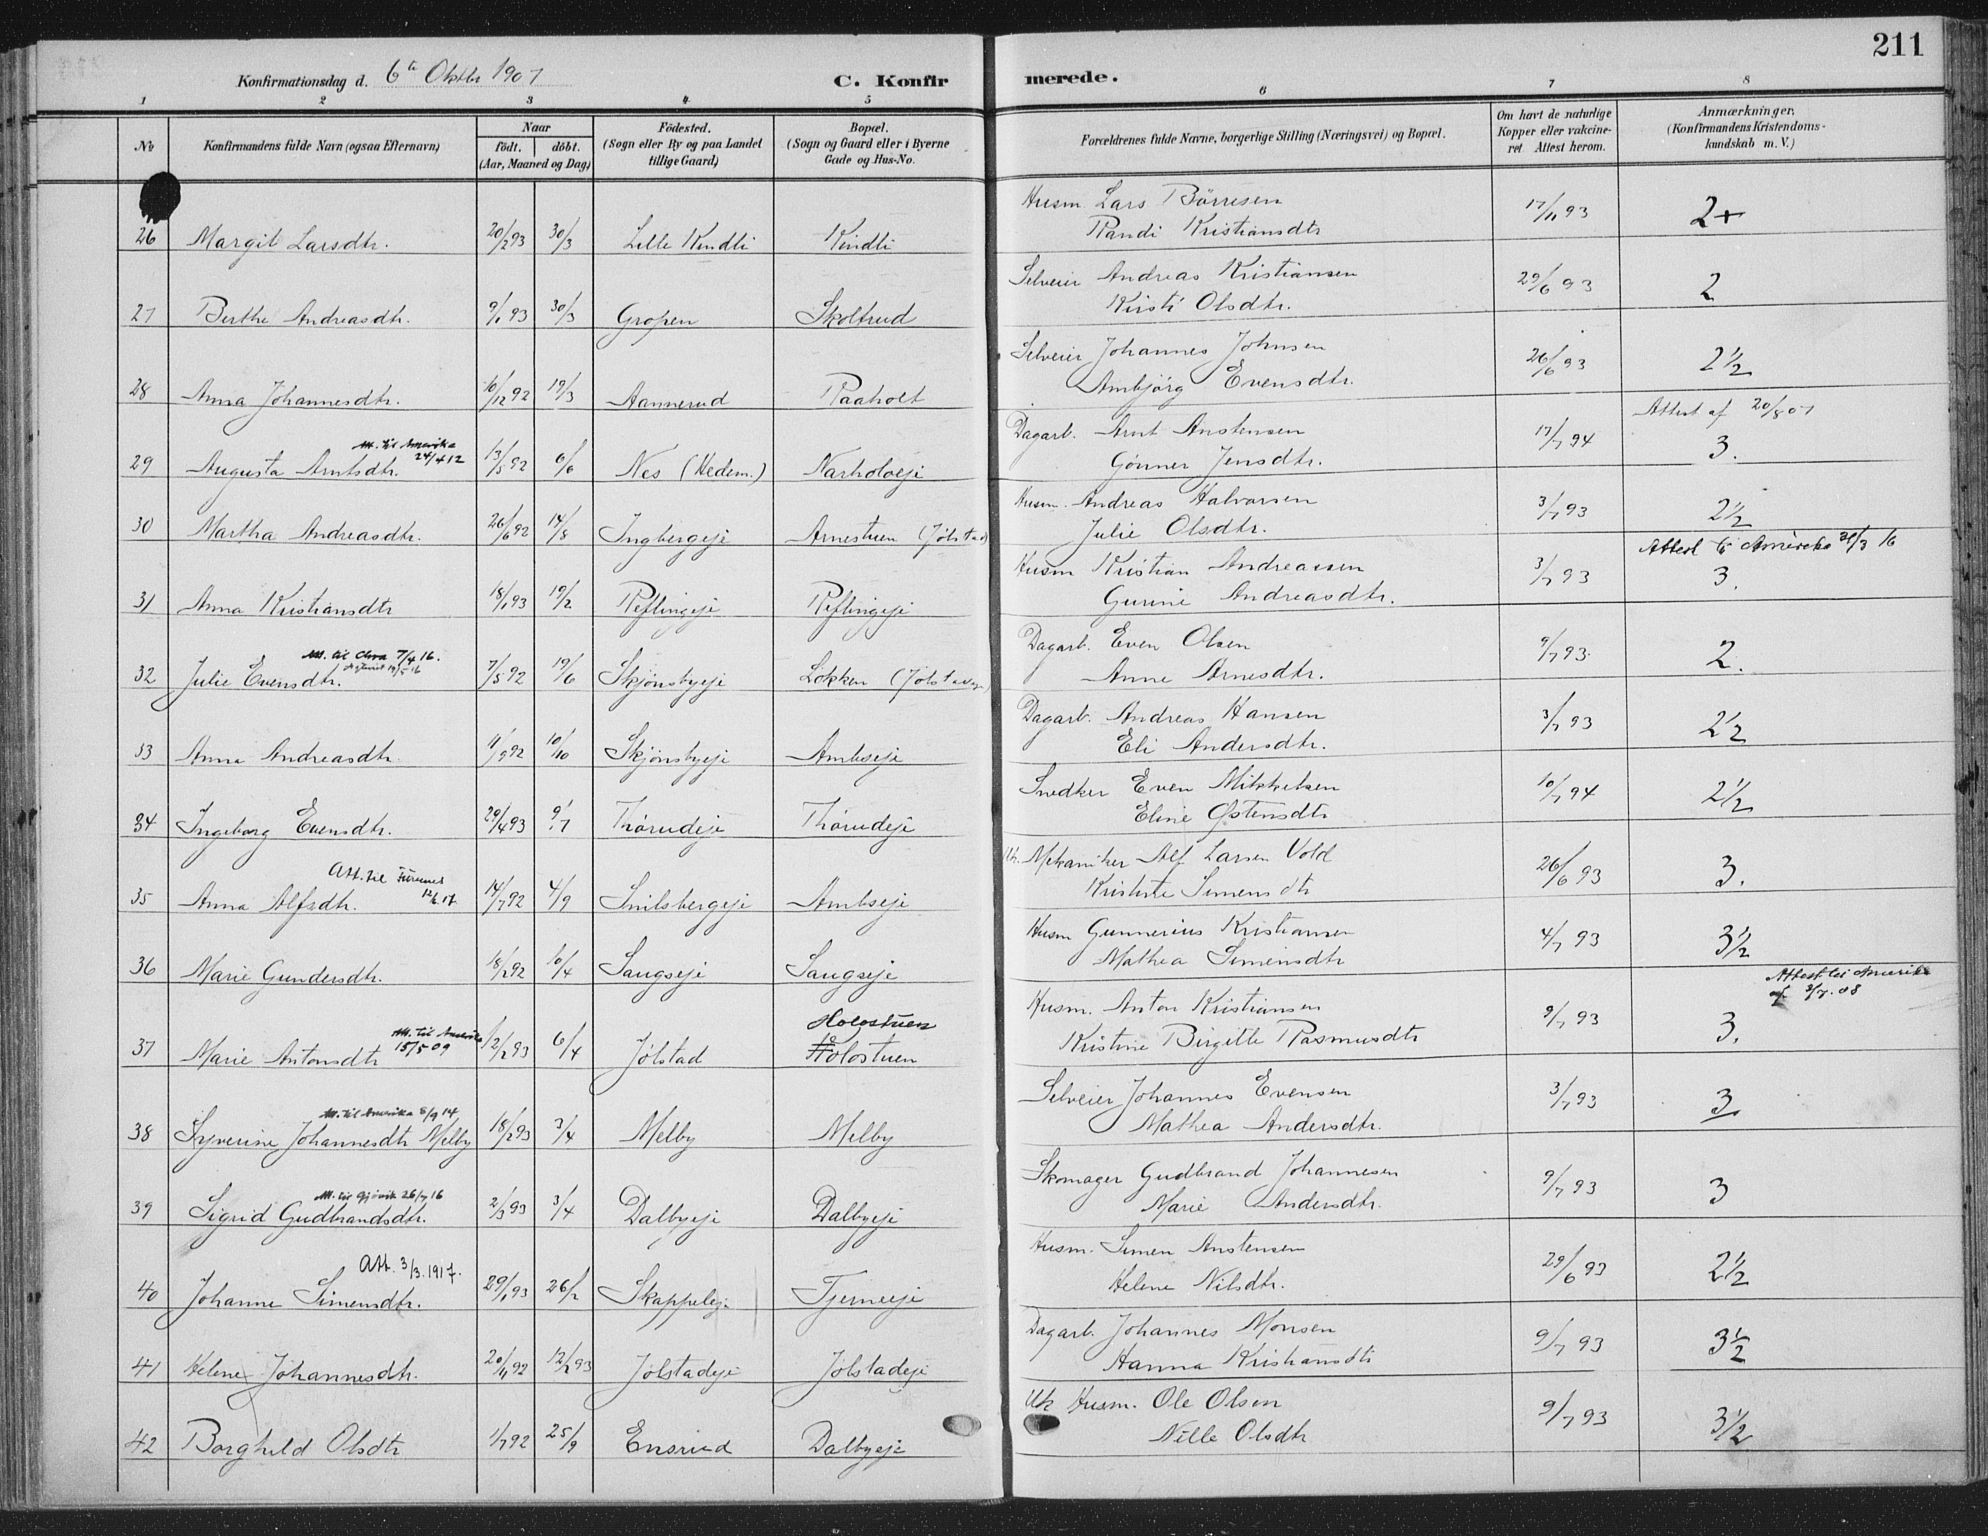 211
Konfirmationsdag d. 6te Oktbr 1907 C. Konfirmerede.
1 2 3 4 5 6 7 8
No
Konfirmandens fulde Navn (ogsaa Efternavn)
Naar
født. døbt.
(Aar, Maaned og Dag)
Fødested.
(Sogn eller By og paa Landet
tillige Gaard)
Bopæl.
(Sogn og Gaard eller i Byerne
Gade og Hus-No.
Forældrenes fulde Navne, borgerlige Stilling (Næringsvei) og Bopæl.
Om havt de naturlige
Kopper eller vakcine-
ret Attest herom.
Anmærkninger,
(Konfirmandens Kristendoms-
kundskab m. V.)
Husm Lars Børresen
26 Margit Larsdtr. 20/2 93 30/3 Lille Kindli Kindli Randi Kristiansdtr 17/11 93 2+
Selveier Andreas Kristiansen
27 Berthe Andreasdtr. 9/1 93 30/3 Gropen Skoltrud Kirsti Olsdtr. 29/6 93 2
Selveier Johannes Johnsen
28 Anna Johannesdtr. 10/12 92 19/3 Aannerud Raaholt Ambjørg Evensdtr. 26/6 93 2½
Attest af 20/8 07
M. til Amerika
24/4 12
Dagarb. Arnt Anstensen
29 Augusta Arntsdtr. 13/5 92 6/6 Nes (Hedem.) Narholoeje Gønner Jensdtr. 17/7 94 3.
Husm. Andreas Halvorsen
30 Martha Andreasdtr. 26/6 92 14/8 Ingbergeje Arnestuen (Jølstad) Julie Olsdtr. 3/7 93 2½
Attest til Amerika 31/3 16
Husm Kristian Andreassen
31 Anna Kristiansdtr 18/1 93 19/2 Reflingeje Reflingeje Gurine Andreasdtr. 3/7 93 3.
M. til Chra 7/4 16.
Dagarb. Even Olsen
32 Julie Evensdtr. 7/5 92 19/6 Skjønsbyeje Løkken Anne Arnesdtr. 9/7 93 2.
Dagarb. Andreas Hansen
33 Anna Andreasdtr. 11/9 92 10/10 Skjønsbyeje Ambseje Eli Andersdtr. 3/7 93 2½
Snedker Even Mikkelsen
34 Ingeborg Evensdtr. 29/4 93 9/7 Thørudeje Thørudeje Eline Østensdtr 10/7 94 2½
Att. til Furunes
Mekaniker Alf Larsen Vold
35 Anna Alfsdtr. 14/7 92 4/9 Snilsbergeje Ambseje Kristine Simensdtr 26/6 93 3.
Husm Gunnerius Kristiansen
36 Marie Gundersdtr. 18/2 92 10/4 Saugseje Saugseje Mathea Simensdtr 4/7 93 3½
Attest til Amerika
af 3/7. 08
M. til Amerika
15/5 09
Holostuen
Husm. Anton Kristiansen
37 Marie Antonsdtr 12/2 93 6/4 Jølstad Holostuen Kristine Birgitte Rasmusdtr 9/7 93 3.
M. til Amerika 5/9 14
Selveier Johannes Evensen
38 Syverine Johannesdtr Melby 18/2 93 3/4 Melby Melby Mathea Andersdtr. 3/7 93 3
M. til Gjøvik 26/7 16
Skomager Gudbrand Johannesen
39 Sigrid Gudbrandsdtr. 2/3 93 3/4 Dalbyeje Dalbyeje Marie Andersdtr. 9/7 93 3
Att. 3/3. 1917.
Husm. Simen Anstensen
40 Johanne Simensdtr. 29/1 93 26/2 Skappeleje Tjerneeje Helene Nilsdtr. 29/6 93 2½
Dagarb. Johannes Monsen
41 Helene Johannesdtr. 20/11 92 12/2 93 Jølstadeje Jølstadeje Hanna Kristiansdtr 9/7 93 3½
Uk Husm. Ole Olsen
42 Borghild Olsdtr 1/7 92 25/9 Ensrud Dalbyeje Nille Olsdtr 9/7 93 3½